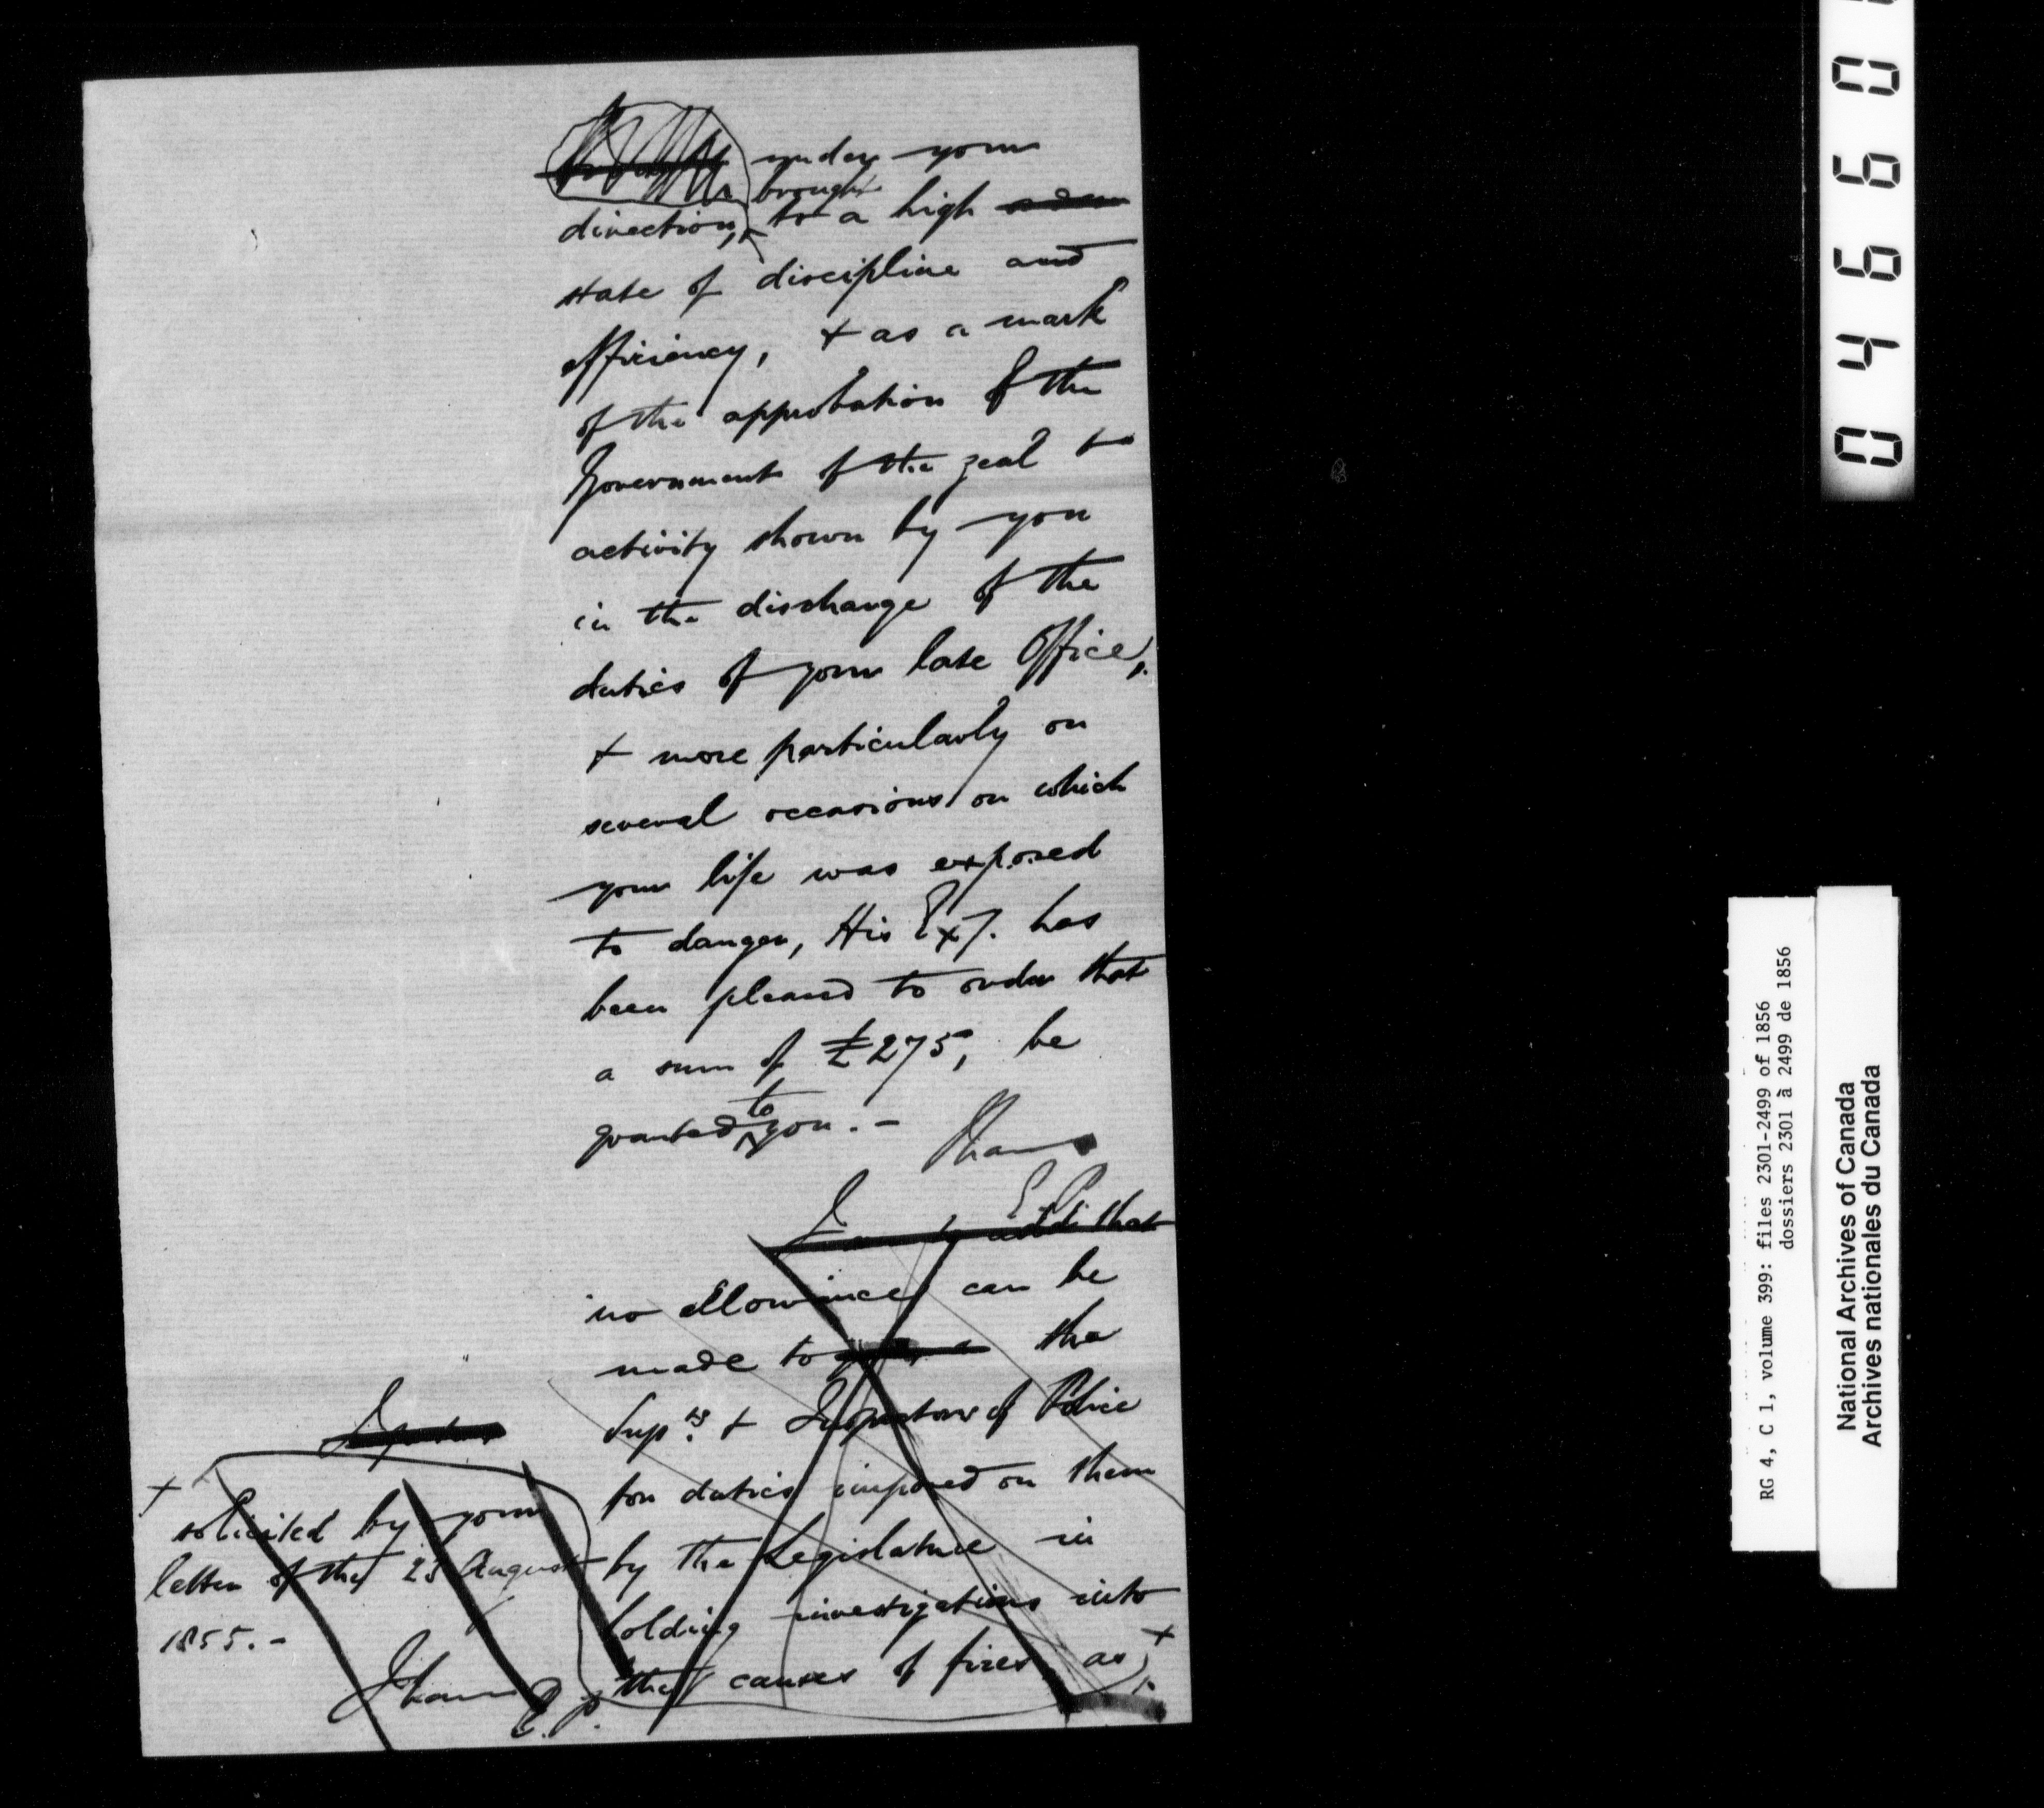 under your
brought
direction, to a high
state of discipline and
efficiency, + as a mark
of the approbation of the
Government of the zeal +
activity shown by you
in the discharge of the
duties of your late Office,
+ more particularly on
several occasions on which
your life was exposed
to danger, His Exy. has
been pleased to order that
a sum of £275, be
granted to you. -
I have
E. P.
I am to add that
no allowance can be
made to the
Supts. + Inspectors of Police
for duties imposed on them
by the Legislature in
holding investigations into
the causes of fires, as +
+ solicited by your
letter of the 23 August
1855. -
I have
E. P.
0 4 6 6 0
RG 4, C 1, volume 399: files 2301-2499 of 1856
dossiers 2301 à 2499 de 1856
National Archives of Canada
Archives nationales du Canada